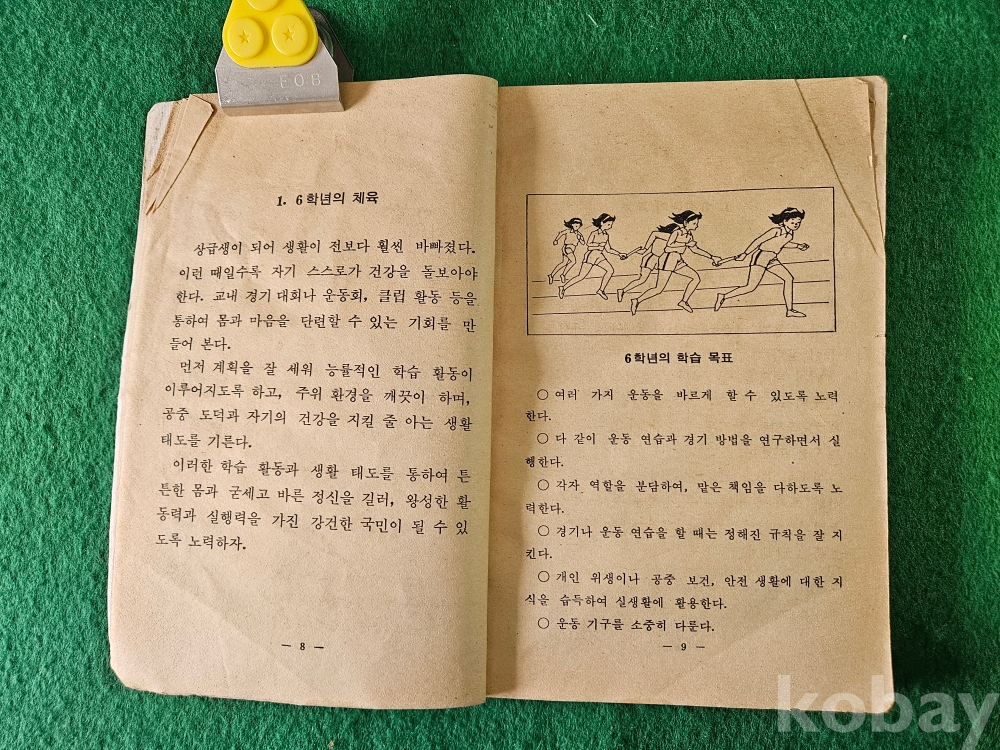 FOB
1. 6학년의 체육
상급생이 되어 생활이 전보다 훨씬 바빠졌다.
이런 때일수록 자기 스스로가 건강을 돌보아야
한다. 교내 경기 대회나 운동회, 클럽 활동 등을
통하여 몸과 마음을 단련할 수 있는 기회를 만
들어 본다.
먼저 계획을 잘 세워 능률적인 학습 활동이
이루어지도록 하고, 주위 환경을 깨끗이 하며,
공중 도덕과 자기의 건강을 지킬 줄 아는 생활
태도를 기른다.
이러한 학습 활동과 생활 태도를 통하여 튼
튼한 몸과 굳세고 바른 정신을 길러, 왕성한 활
동력과 실행력을 가진 강건한 국민이 될 수 있
도록 노력하자.
— 8 —
6학년의 학습 목표
○ 여러 가지 운동을 바르게 할 수 있도록 노력
한다.
○ 다 같이 운동 연습과 경기 방법을 연구하면서 실
행한다.
○ 각자 역할을 분담하여, 맡은 책임을 다하도록 노
력한다.
○ 경기나 운동 연습을 할 때는 정해진 규칙을 잘 지
킨다.
○ 개인 위생이나 공중 보건, 안전 생활에 대한 지
식을 습득하여 실생활에 활용한다.
○ 운동 기구를 소중히 다룬다.
— 9 —
kobay